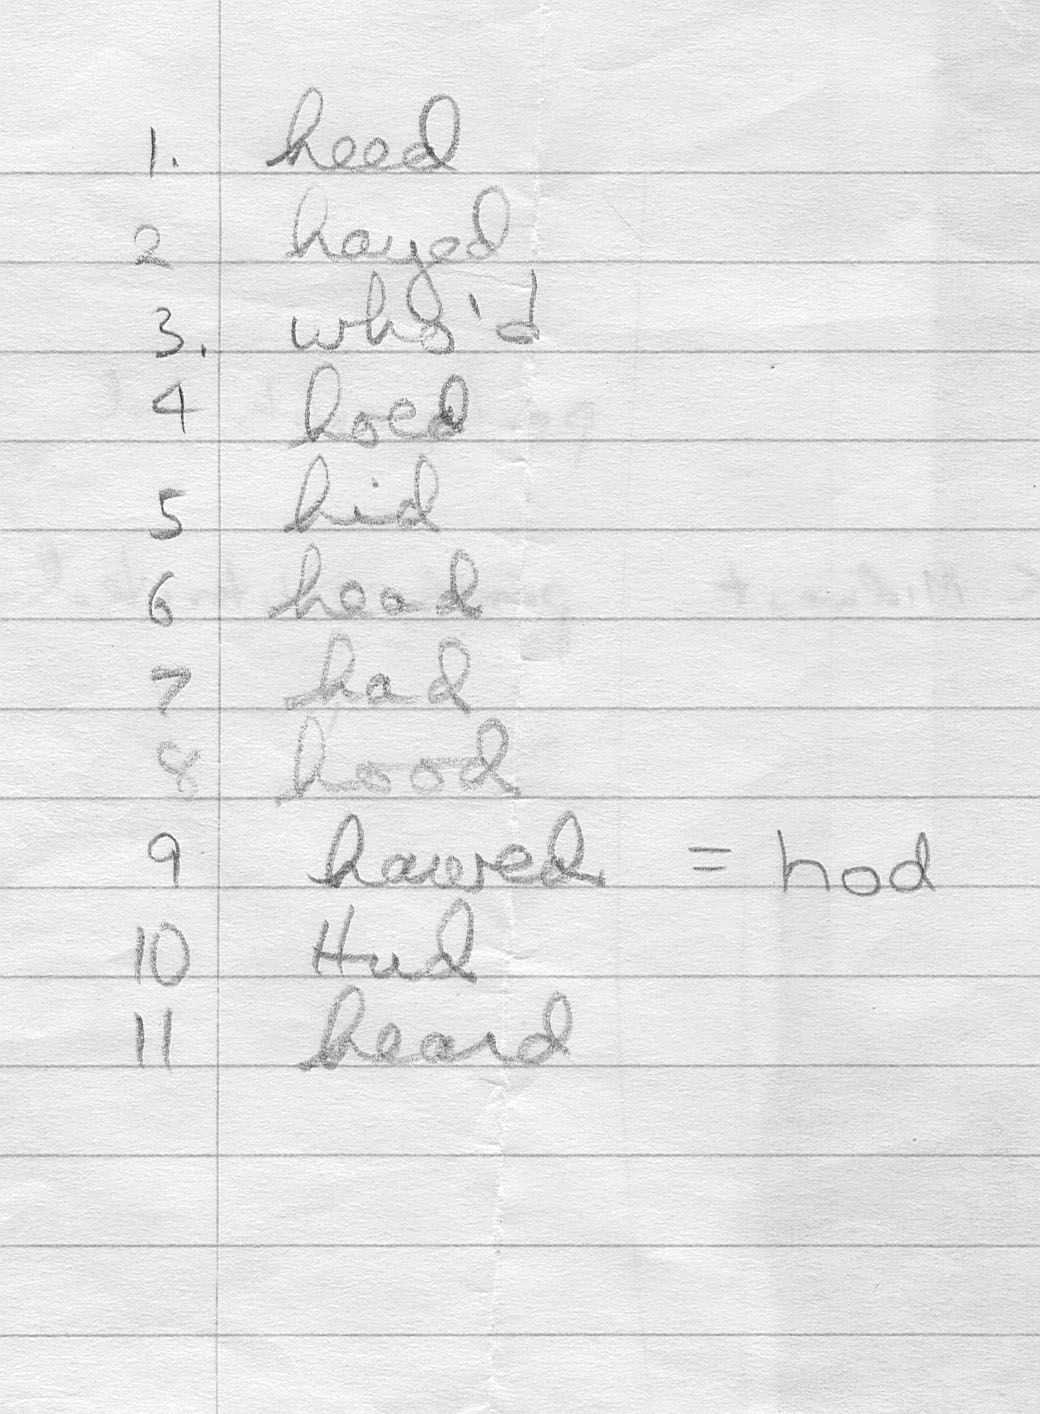 1. heed
2 hayed
3. who'd
4 hoed
5 hid
6 head
7 had
8 hood
9 hawed = hod
10 Hud
11 heard